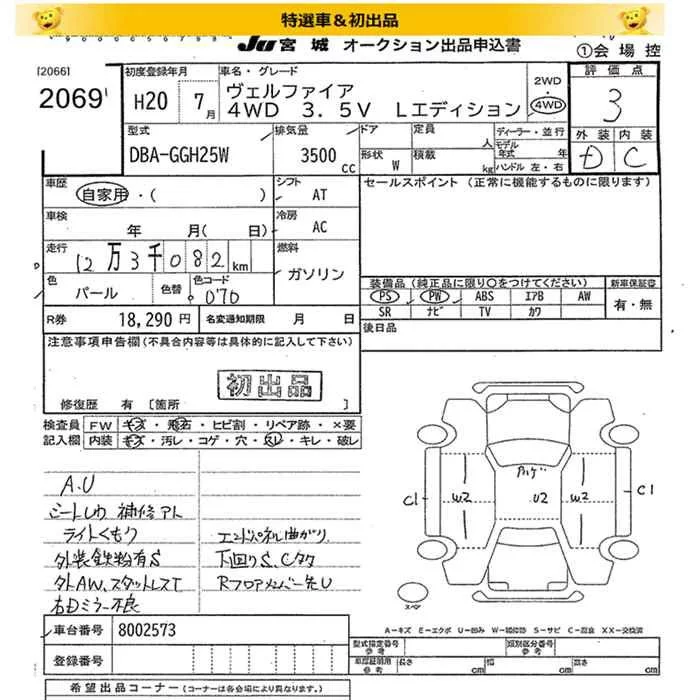 特選車＆初出品
JU 宮城 オークション出品申込書
①会場控
[2066]
2069
初度登録年月
H20 7月
車名・グレード
ヴェルファイア
4WD 3.5V Lエディション
2WD
・
4WD
評価点
3
外装 内装
D C
型式
DBA-GGH25W
排気量
3500 cc
ドア
形状 W
定員 人
積載 kg
ディーラー・並行
モデル年式 年
ハンドル 左・右
車歴
自家用・( )
シフト
AT
セールスポイント (正常に機能するものに限ります)
車検
年 月( 日)
冷房
AC
走行
12万3千082km
燃料
ガソリン
色
パール
色替
色コード
070
装備品 (純正品に限り○をつけてください)
PS PW ABS エアB AW
SR ナビ TV カワ
新車保証書
有・無
R券 18,290 円
名変通知期限 月 日
後日品
注意事項申告欄(不具合内容等は具体的に記入して下さい)
初出品
修復歴 有 [箇所 ]
検査員記入欄
FW キズ・飛石・ヒビ割・リペア跡・×要
内装 キズ・汚レ・コゲ・穴・スレ・キレ・破レ
A.U
シートしわ 補修アト
ライトくもり
外装鉄粉有S
外AW、スタットレスT
右Dミラー不良
エンドパネル曲がり
下回りS、Cタク
Rフロアメンバー先U
C1 W2 アハゲ U2 W2 C1
スペア
A－キズ E－エクボ U－凹み W－補修跡 S－サビ C－腐食 XX－交換済
車台番号 8002573
登録番号
型式指定番号
参考
類別区分番号
参考
車庫証明用
参考
長さ cm
幅 cm
高さ cm
希望出品コーナー (コーナーは各会場により異なります。)